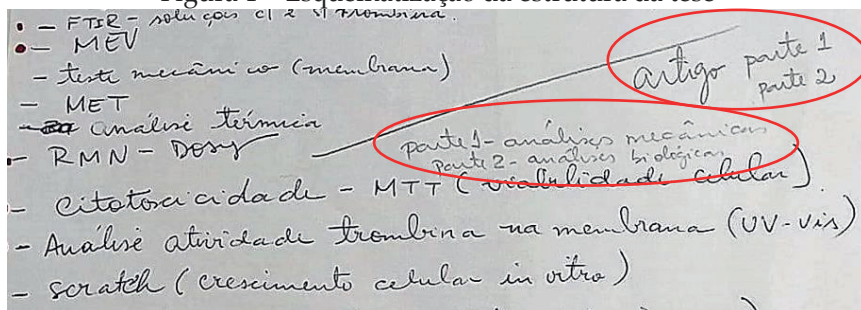 Figura 1 – Esquematização da estrutura da tese
• – FTIR – soluções c/ e s/ trombina.
• – MEV
– teste mecânico (membrana)
– MET
– análise térmica
– RMN – DOSY
artigo parte 1
parte 2
parte 1 - análises mecânicas
parte 2 - análises biológicas
– Citotoxicidade – MTT (viabilidade celular)
– Análise atividade trombina na membrana (UV-vis)
– scratch (crescimento celular in vitro)